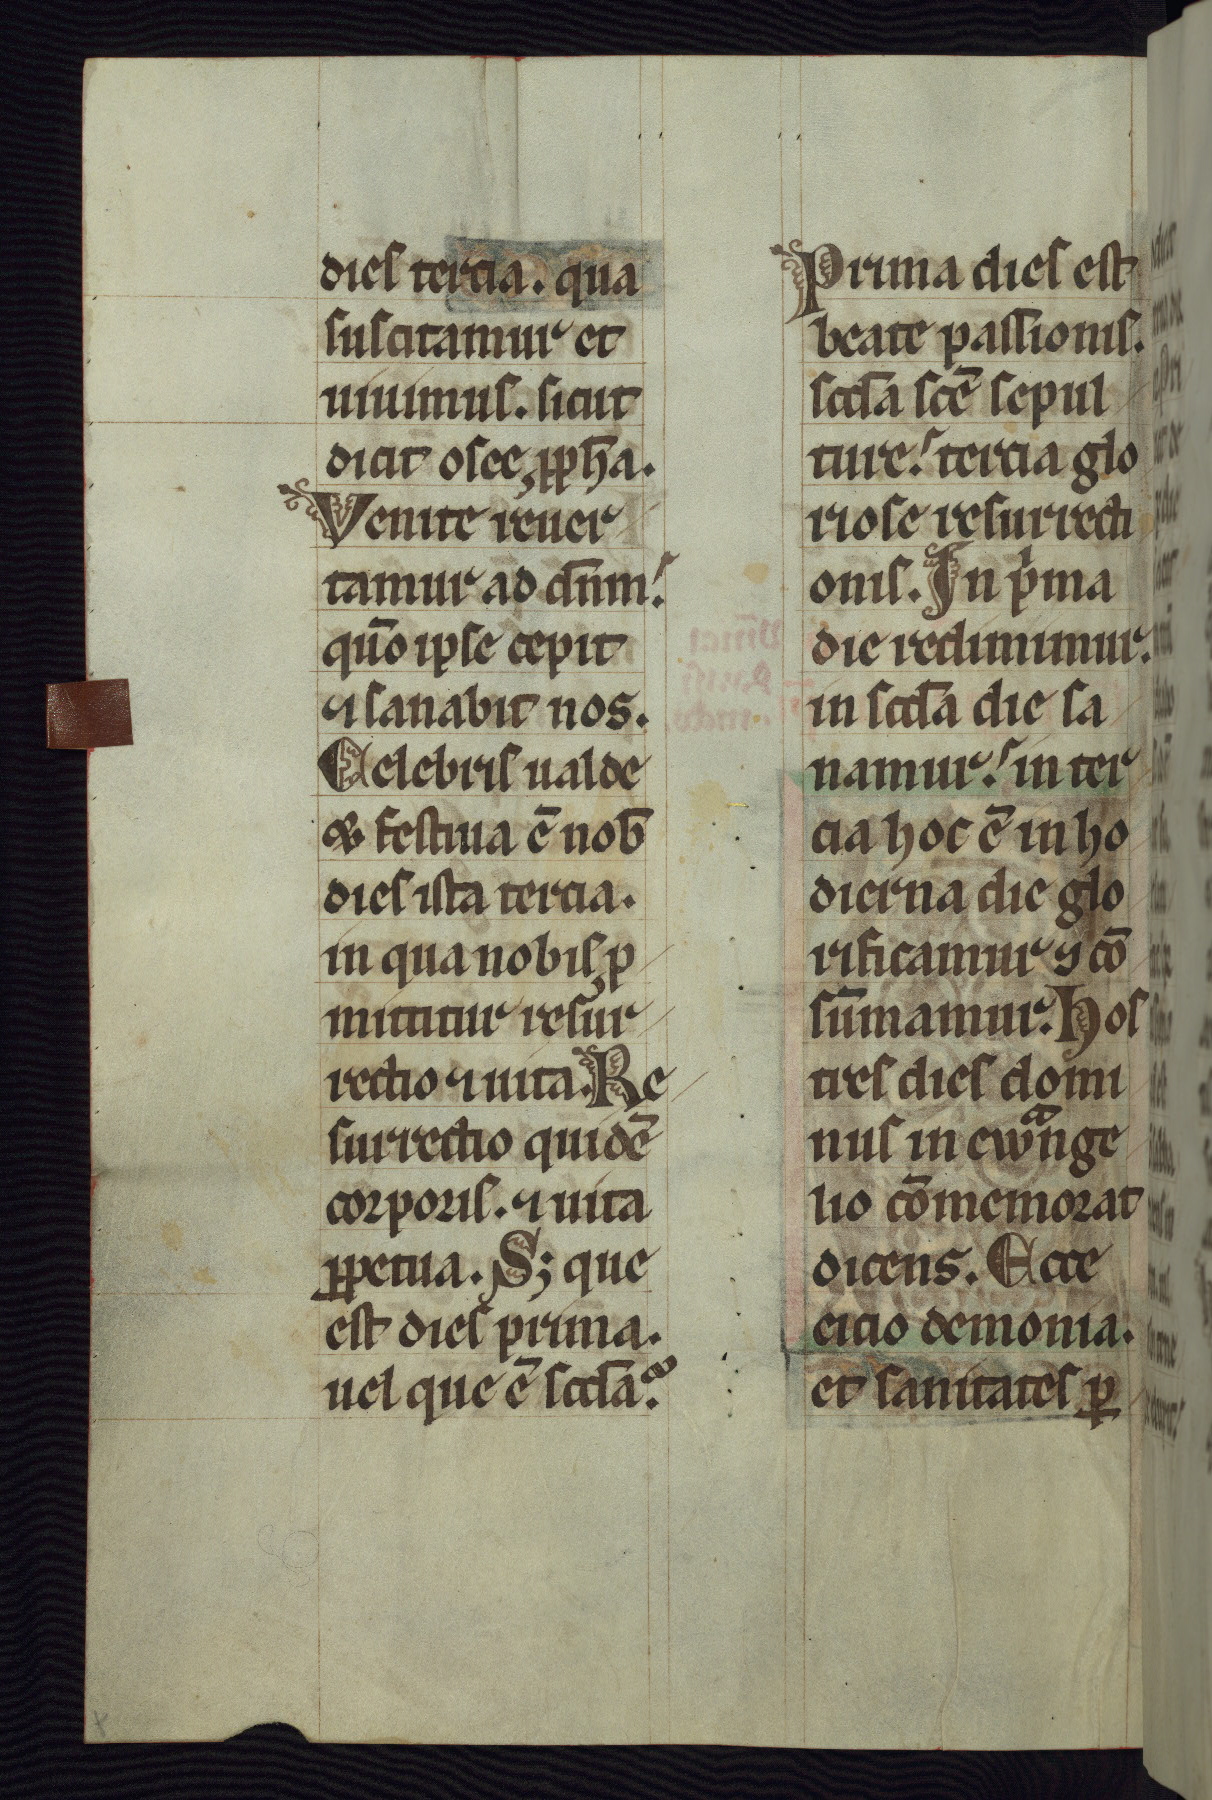 dies tercia. qua
suscitamur et
uiuimus. sicut
dicit osee ꝓph̄a.
Venite reuer
tamur ad dn̄m.
qūo ipse cepit
⁊ sanabit nos.
Celebris ualde
& festiua ē nob̄
dies ista tercia.
in qua nobis ꝓ
mittitur resur
rectio ⁊ uita. Re
surrectio quidē
corporis. ⁊ uita
ꝑpetua. S; que
est dies prima.
uel que ē sccd̄a?
Prima dies est
beate passionis.
sccd̄a scē sepul
ture. tercia glo
riose resurrecti
onis. In pͥma
die redimimur.
in sccd̄a die sa
namur. in ter
cia hoc ē in ho
dierna die glo
rificamur ⁊ cō
sūmamur. Hos
tres dies domi
nus in ewāngе
lio cōmemorat
dicens. Ecce
eicio demonia.
et sanitates ꝑ